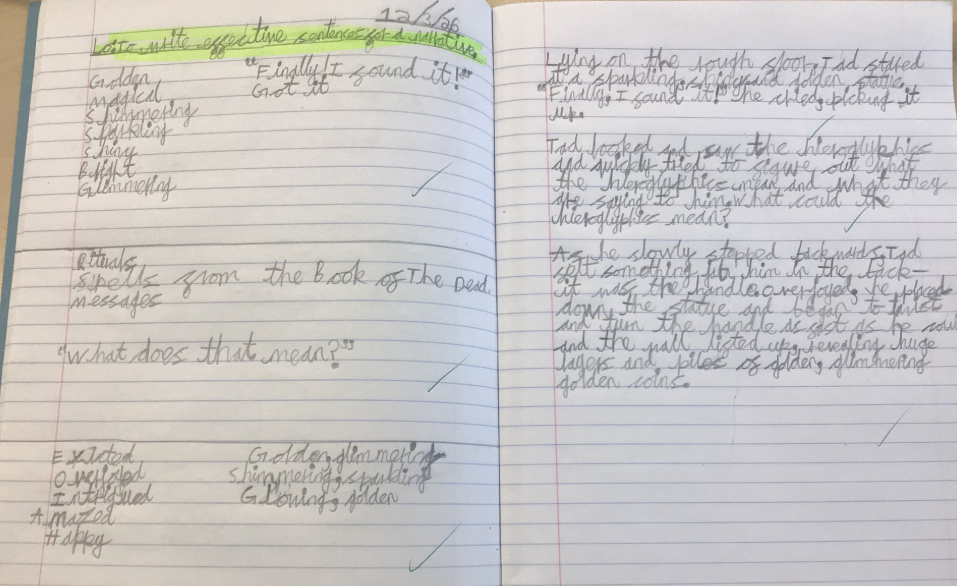 12/3/26
L.O: To write effective sentences for a narrative.
Golden
magical
shimmering
sparkling
shiny
Bright
Glimmering
"Finally, I found it!"
Got it
Rituals
Spells from the Book of The Dead.
messages
"What does that mean?"
Exicted
Overjoyed
Intrigued
Amazed
Happy
Golden, glimmering
Shimmering, sparkling
Glowing, golden
Lying on the rough floor, Tad
at a sparkling, shiny and golden statue.
"Finally, I found it!" he cried, picking it
up.
Tad looked and saw the hieroglyphics
and quickly tried to figure out what
the hieroglyphics mean and what they
are saying to him. what could the
hieroglyphics mean?
As he slowly stepped backwards, Tad
felt something him in the back-
it was the handle. Overjoyed, he placed
down the statue and began to twist
and turn the handle as fast as he
and the wall lifted up, revealing huge
layers and piles of golden, glimmering
golden coins.